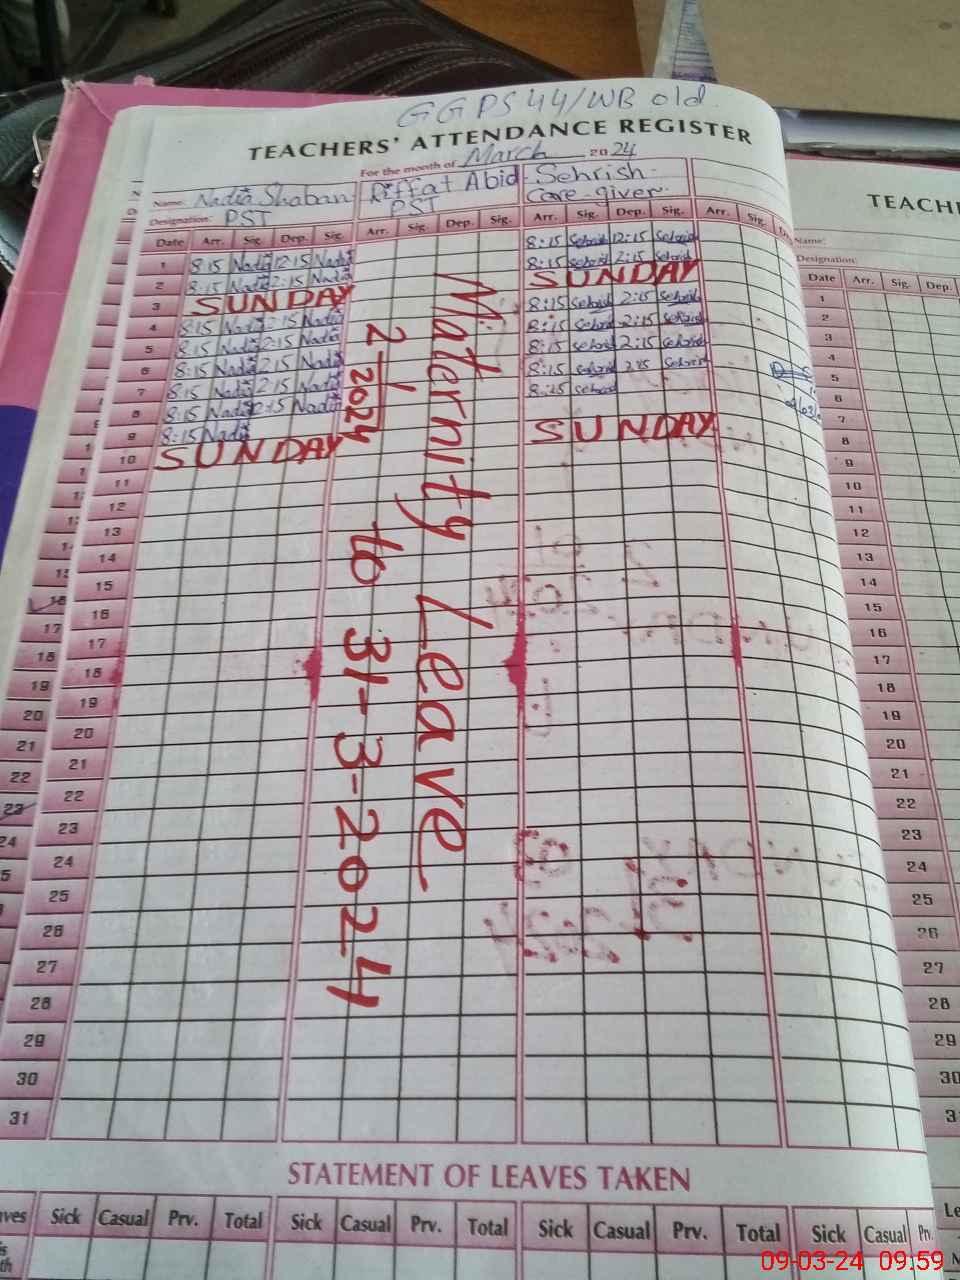 GGPS 44/WB old
TEACHERS' ATTENDANCE REGISTER
For the month of March 2024
Name: Nadia Shaban Riffat Abid Sehrish
Designation: PST PST Care-giver
Date Arr. Sig. Dep. Sig. Arr. Sig. Dep. Sig. Arr. Sig. Dep. Sig. Arr. Sig.
1 8:15 Nadia 12:15 Nadia 8:15 Sehrish 12:15 Sehrish
2 8:15 Nadia 2:15 Nadia 8:15 Sehrish 2:15 Sehrish
3 SUNDAY SUNDAY
4 8:15 Nadia 2:15 Nadia 8:15 Sehrish 2:15 Sehrish
5 8:15 Nadia 2:15 Nadia 8:15 Sehrish 2:15 Sehrish
6 8:15 Nadia 2:15 Nadia 8:15 Sehrish 2:15 Sehrish
7 8:15 Nadia 2:15 Nadia 8:15 Sehrish 2:15 Sehrish
8 8:15 Nadia 2:15 Nadia 8:15 Sehrish
9 8:15 Nadia
10 SUNDAY SUNDAY
11
12
13
14
15
16
17
18
19
20
21
22
23
24
25
26
27
28
29
30
31
Maternity Leave
2024 to 31-3-2024
STATEMENT OF LEAVES TAKEN
Sick Casual Prv. Total Sick Casual Prv. Total Sick Casual Prv. Total Sick Casual Prv.
TEACH
Name:
Designation:
Date Arr. Sig. Dep.
1
2
3
4
5
6
7
8
9
10
11
12
13
14
15
16
17
18
19
20
21
22
23
24
25
26
27
28
29
30
3
09-03-24 09:59